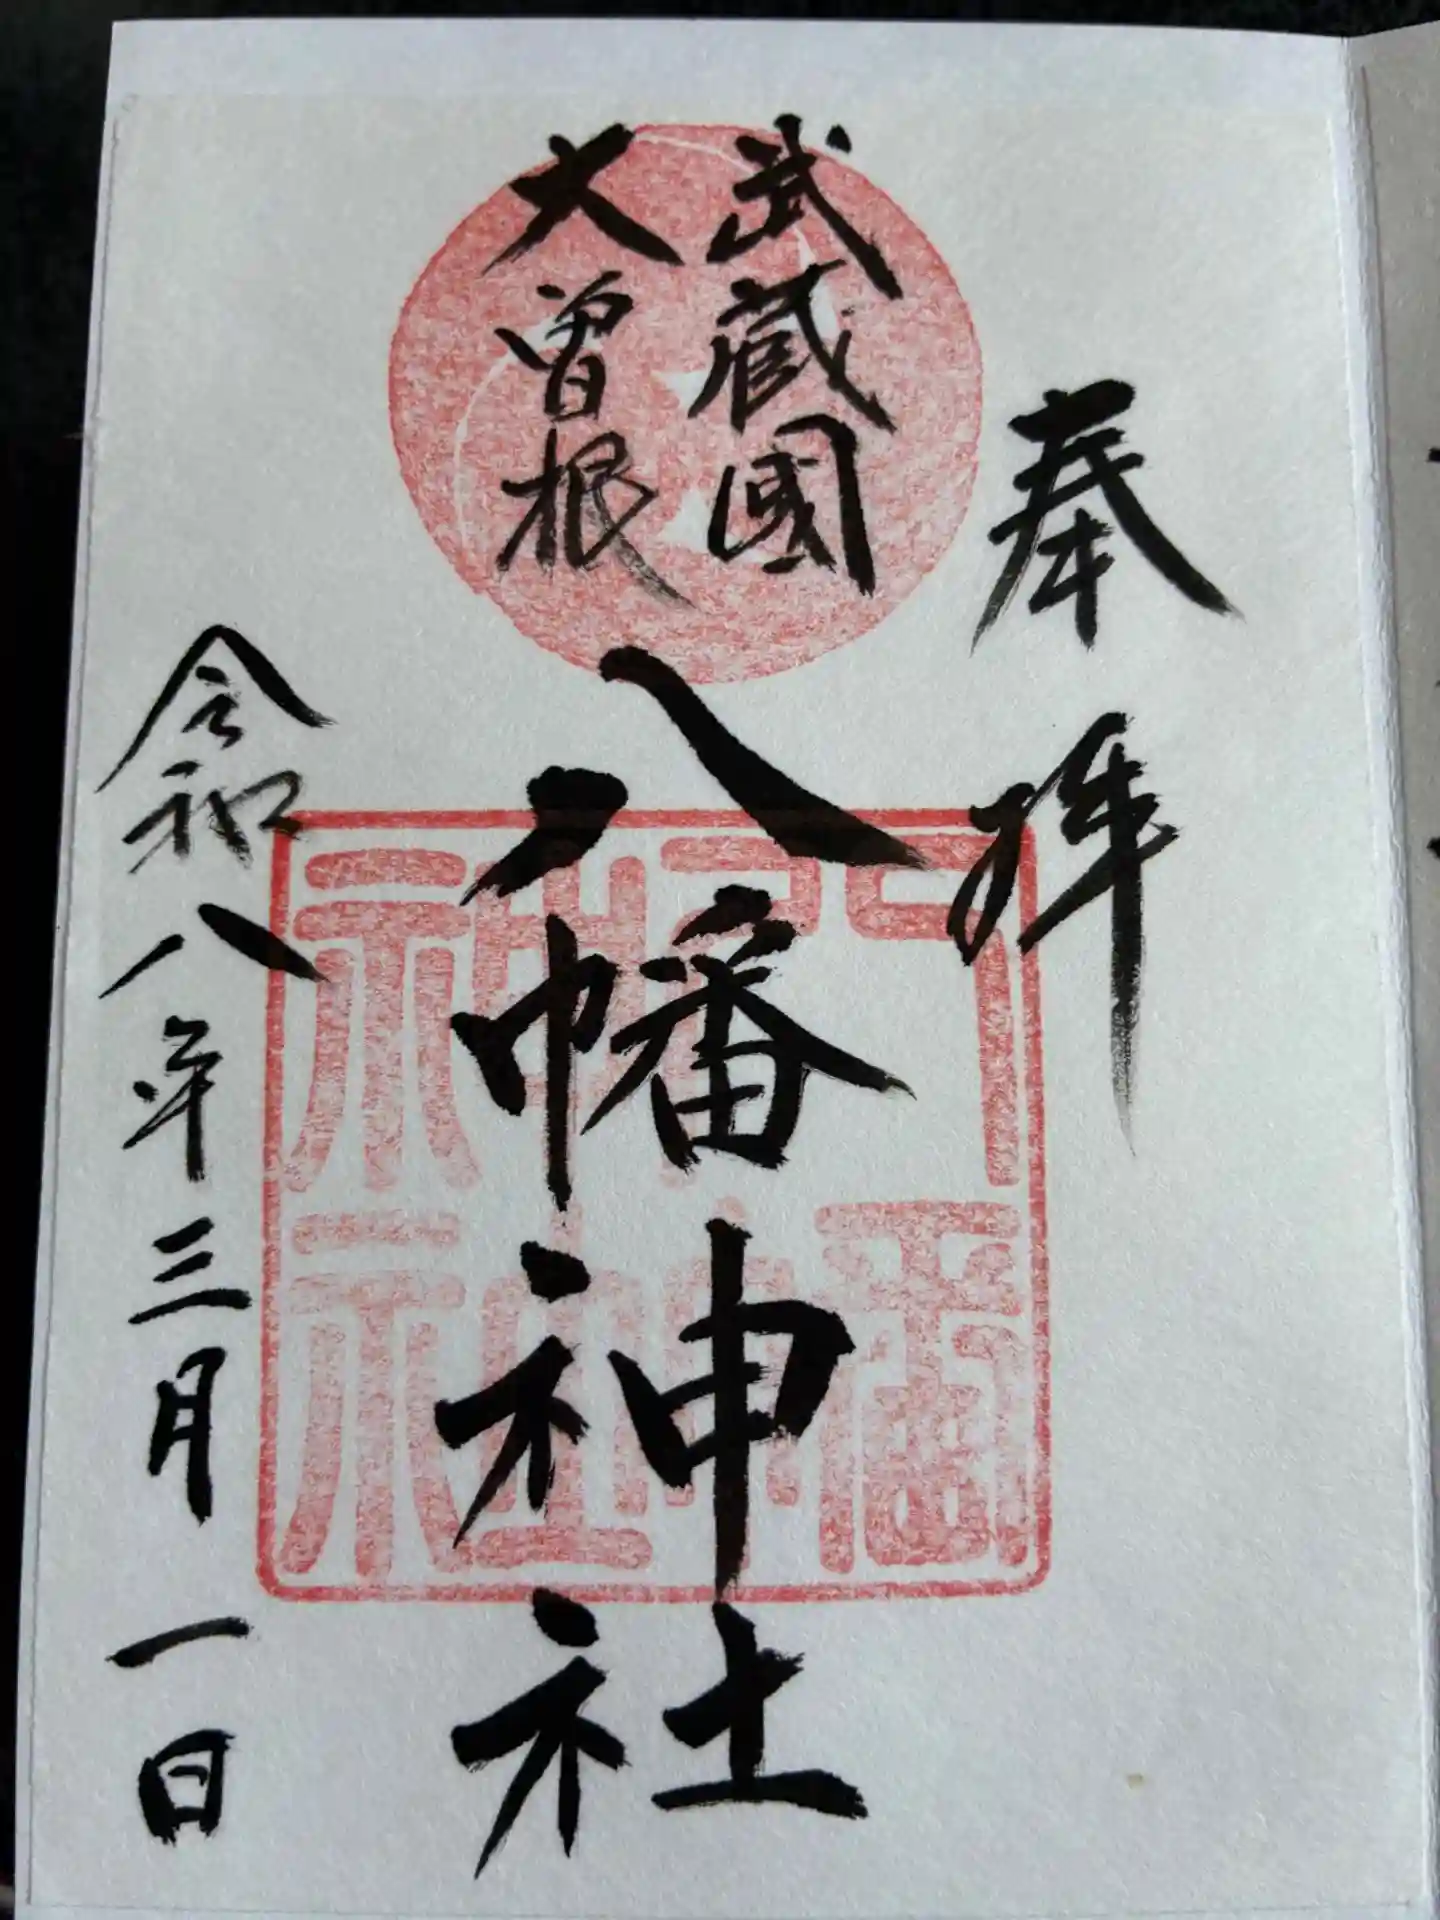 奉拝
武蔵國
大曽根
八幡神社
令和八年三月一日
八幡
神社